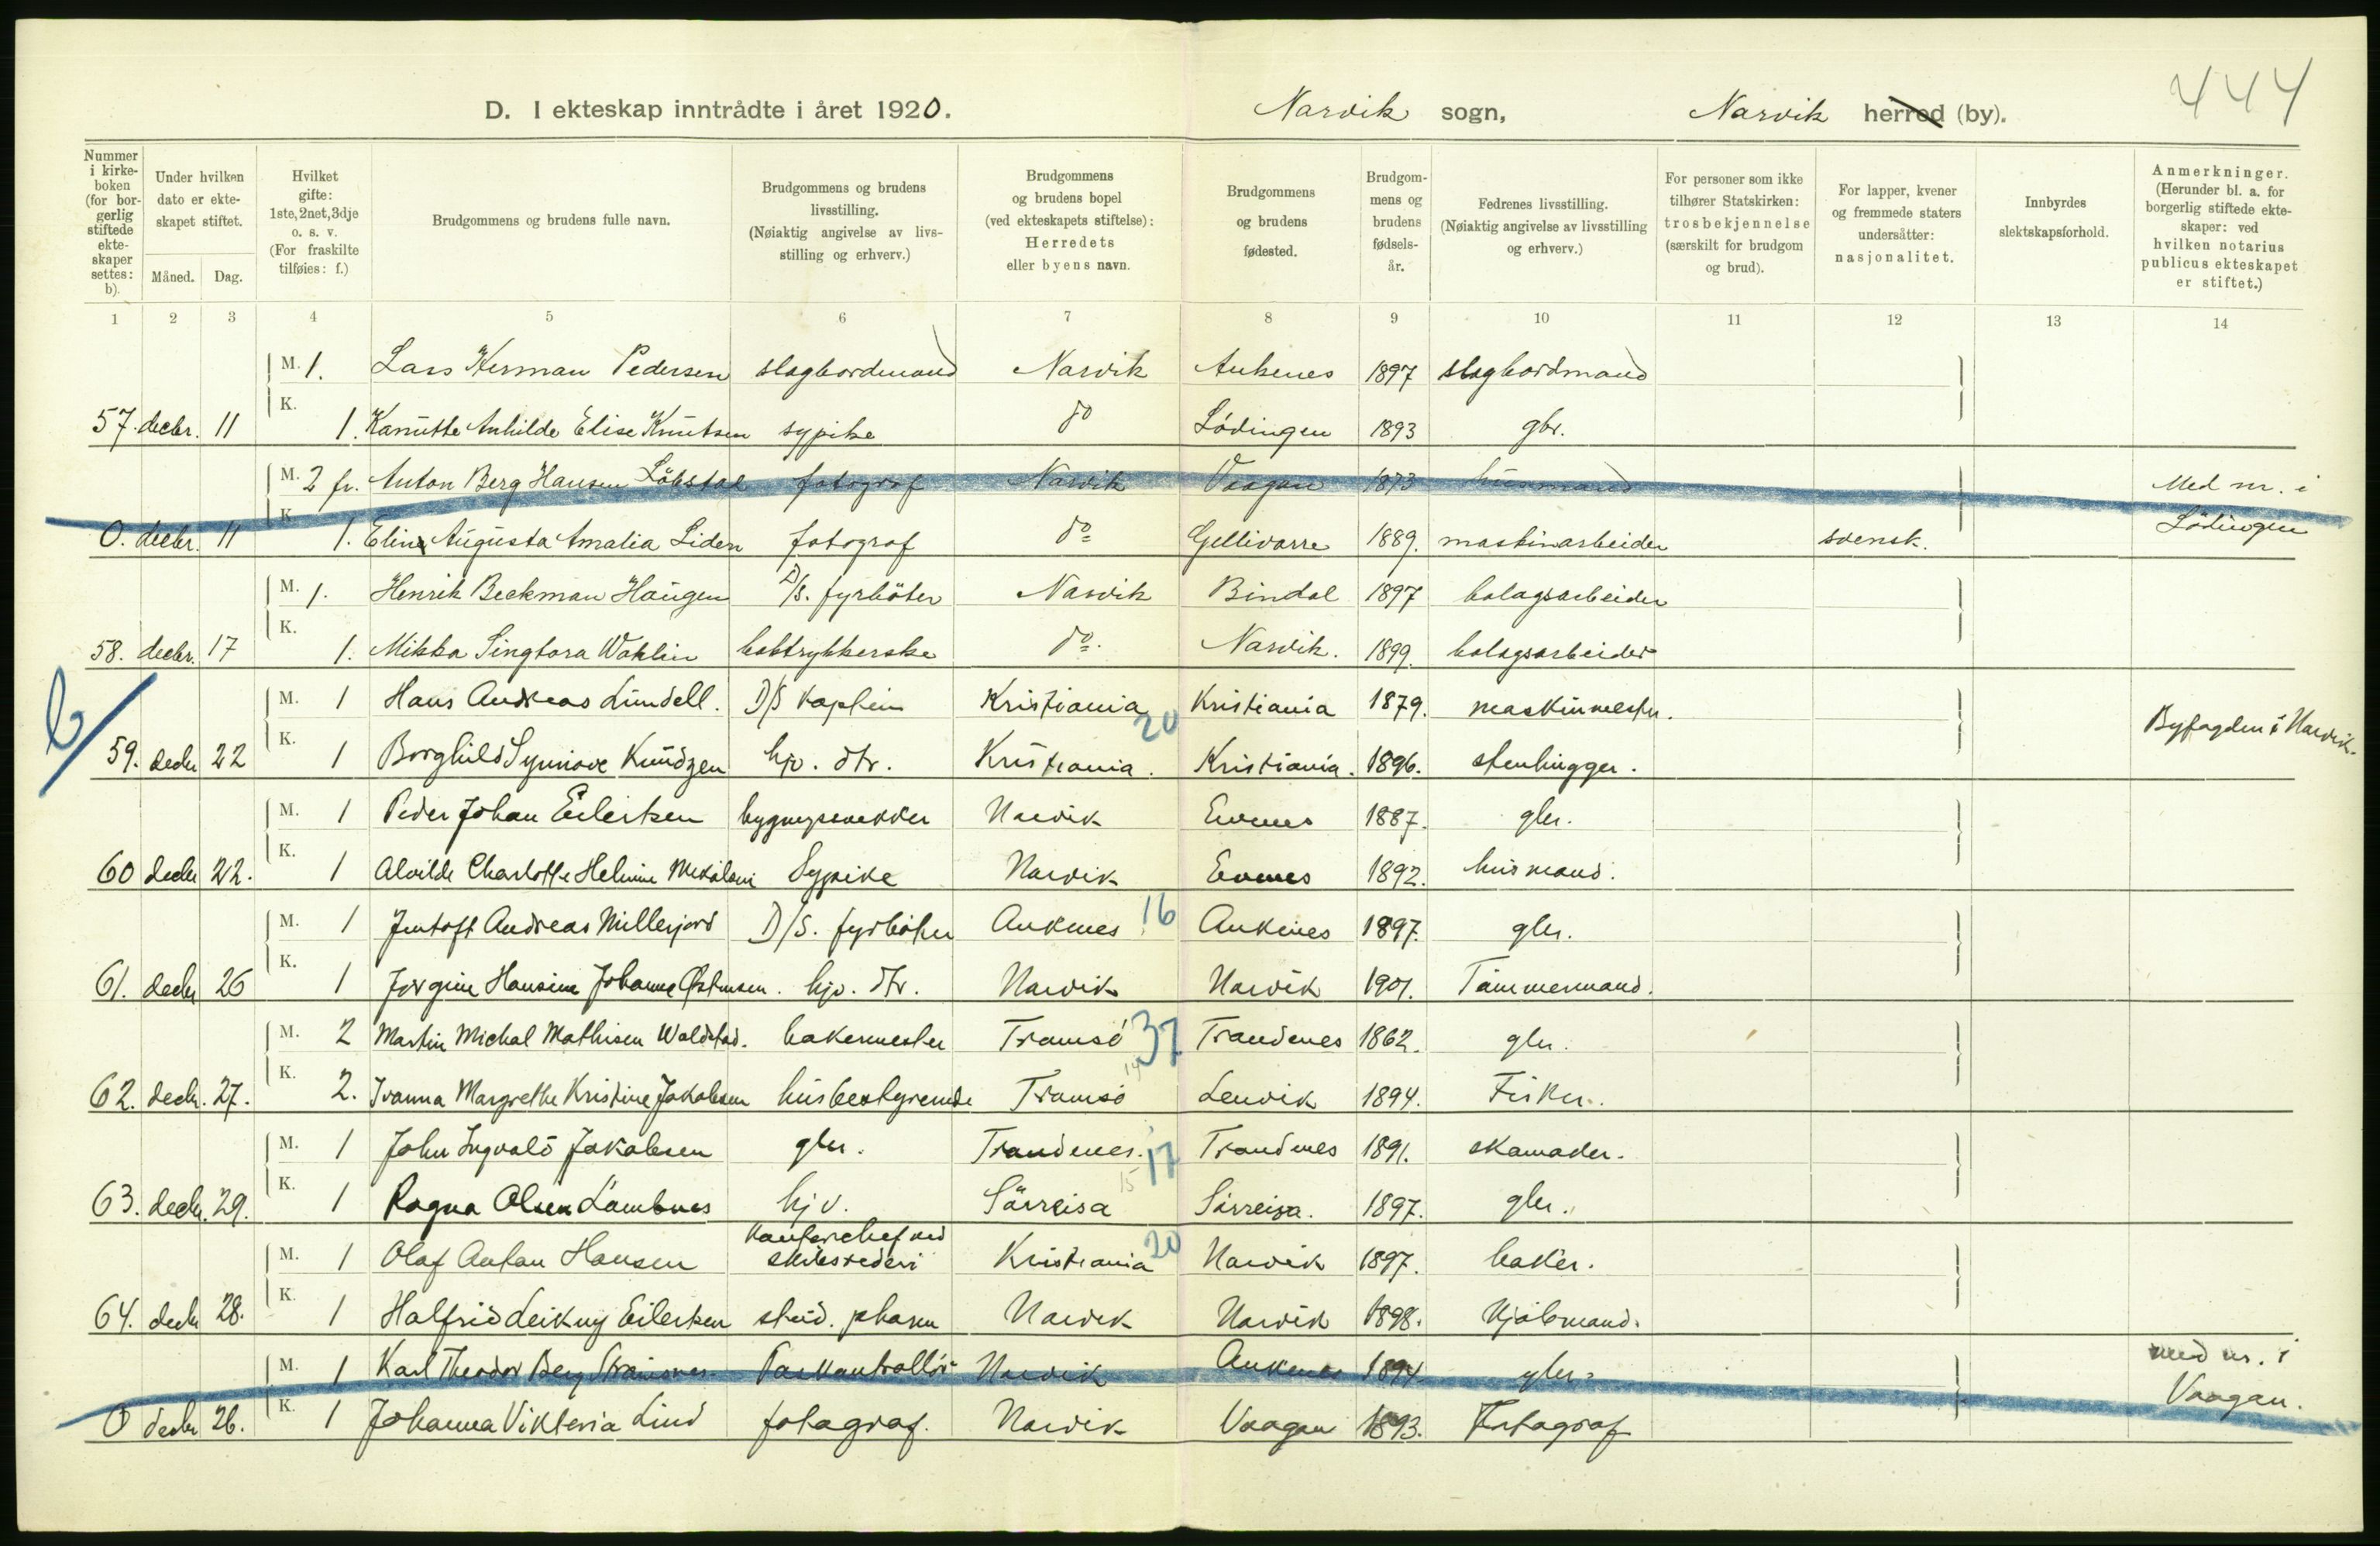 444
D. I ekteskap inntrådte i året 1920. Narvik sogn, Narvik herred (by).
Nummer i kirkeboken (for borgerlig stiftede ekteskaper settes: b).
Under hvilken dato er ekteskapet stiftet.
Måned. Dag.
Hvilket gifte: 1ste, 2net, 3dje o. s. v. (For fraskilte tilføies: f.)
Brudgommens og brudens fulle navn.
Brudgommens og brudens livsstilling. (Nøiaktig angivelse av livsstilling og erhverv.)
Brudgommens og brudens bopel (ved ekteskapets stiftelse): Herredets eller byens navn.
Brudgommens og brudens fødested.
Brudgommens og brudens fødselsår.
Fedrenes livsstilling. (Nøiaktig angivelse av livsstilling og erhverv.)
For personer som ikke tilhører Statskirken: trosbekjennelse (særskilt for brudgom og brud).
For lapper, kvener og fremmede staters undersåtter: nasjonalitet.
Innbyrdes slektskapsforhold.
Anmerkninger. (Herunder bl. a. for borgerlig stiftede ekteskaper: ved hvilken notarius publicus ekteskapet er stiftet.)
1 2 3 4 5 6 7 8 9 10 11 12 13 14
M. 1. Lars Herman Pedersen slagbordmand Narvik Ankenes 1897 slagbordmand
57. decbr. 11 K. 1. Kanutte Anhilde Elise Knutsen sypike do Lödingen 1893 gbr.
M. 2 fr. Anton Berg Hansen Löbstal fotograf Narvik Vaagan 1873 husmand Med nr. i
0. decbr. 11 K. 1. Eline Augusta Amalia Liden fotograf do Gellivarre 1889. maskinarbeider svensk. Lödingen
M. 1. Henrik Beckman Haugen D/S. fyrböter Narvik Bindal 1897 bolagsarbeider
58. decbr. 17 K. 1. Mikka Singtora Wahlin boktrykkerske do. Narvik. 1899. bolagsarbeider
M. 1 Hans Andreas Lundell. D/S kaptein Kristiania 20 Kristiania 1879. maskinmester.
b/ 59. decbr 22 K. 1 Borghild Synnove Knudzen hjv. dtr. Kristiania. Kristiania. 1896. stenhugger. Byfogden i Narvik.
M. 1 Peder Johan Eilertsen Narvik Evenes 1887. gbr.
60 decbr 22. K. 1 Alvilde Charlotte Helmine Sypike Narvik Evenes 1892. husmand.
M. 1 Jentoft Andreas Millerjord D/S. fyrböter Ankenes 16 Ankenes 1897. gbr.
61. decbr 26 K. 1 Jorgine Hansine Johanne hjv. dtr. Narvik Narvik 1901. Tømmermand.
M. 2 Martin Michal Mathisen Waldstad. bakermester Tromsö 37 Trondenes 1862. gbr.
62. decbr. 27. K. 2. Ivanna Margrethe Kristine Jakobsen husbestyrende Tromsö Lenvik 1894. Fisker.
M. 1 John Ingvald Jakobsen gbr. Trondenes. 17 Trondenes 1891. skomaker.
63. decbr. 29. K. 1 Ragna Olsen Lambnes hjv. Sörreisa 15 Sörreisa. 1897. gbr.
M. 1 Olaf Anton Hansen kontorchef ved skibsrederi Kristiania 20 Narvik 1897. baker.
64. decbr 28. K. 1 Halfrid Leikny Eilertsen stud. pharm Narvik Narvik 1898. Kjøbmand.
M. 1 Karl Theodor Berg Straumsnes. Paskontrollör Narvik Ankenes 1894 gbr. med nr. i
0 decbr 26. K. 1 Johanna Viktoria Lind fotograf. Narvik Vaagan 1893. Fotograf Vaagan.